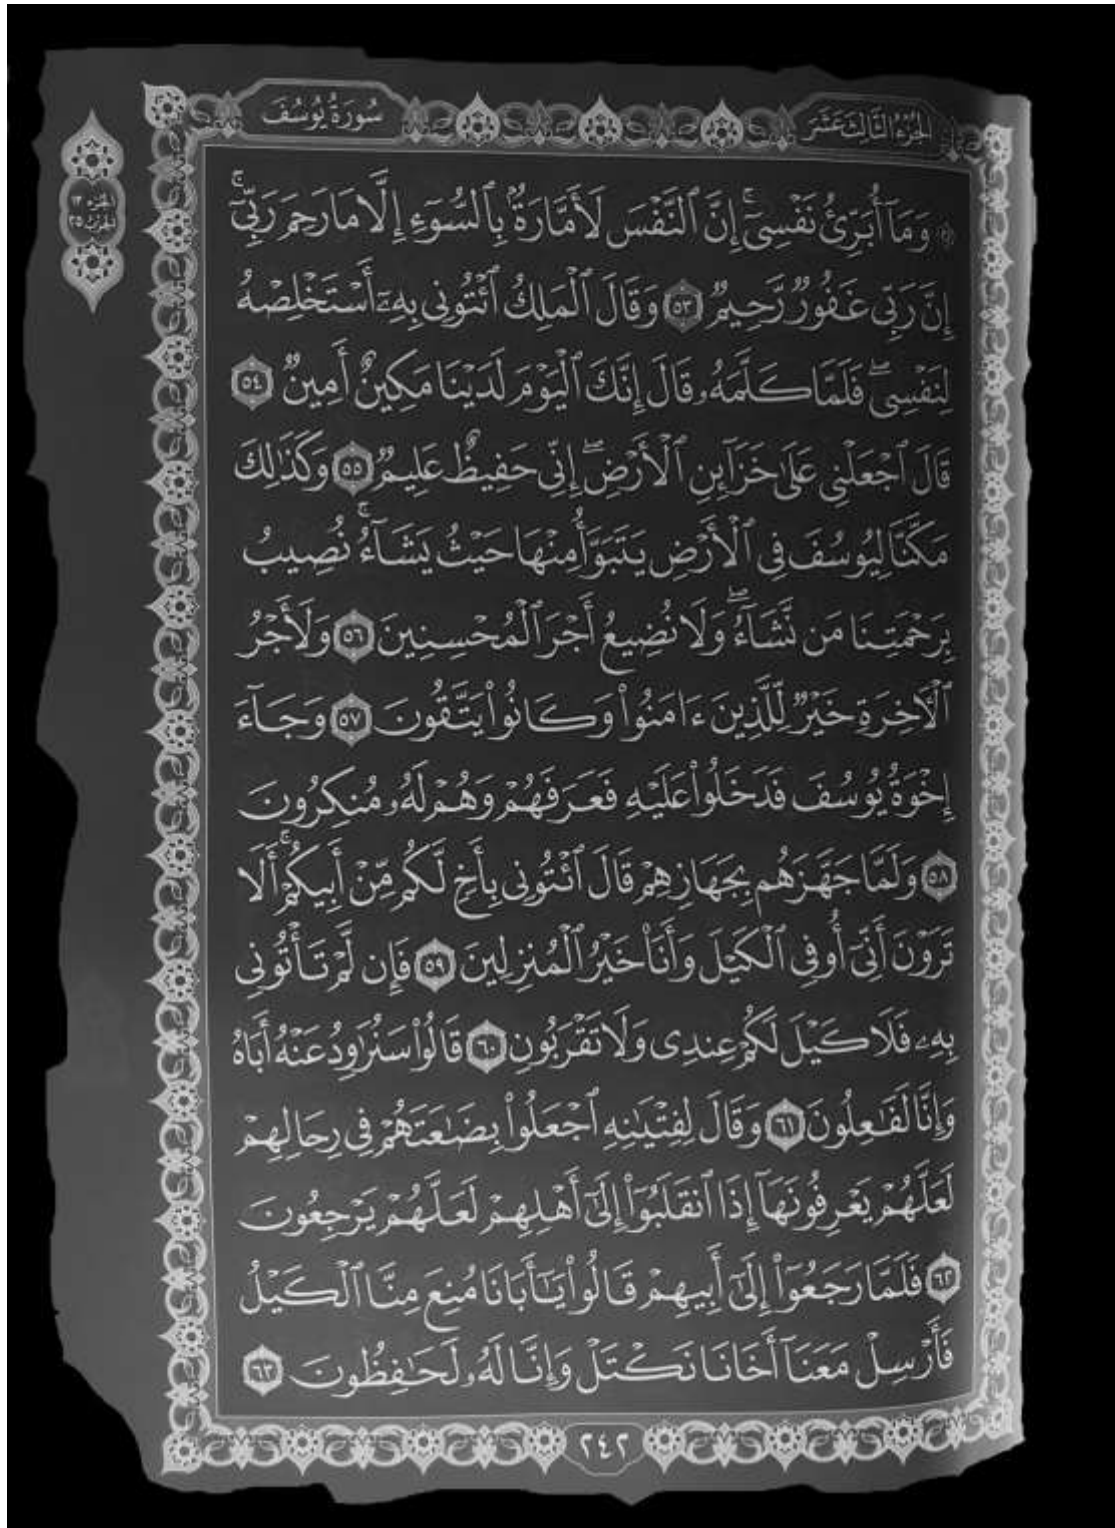 الجزء الثالث عشر
سورة يوسف
الجزء ١٣
الحزب ٢٥
۞ وَمَآ أُبَرِّئُ نَفْسِىٓ ۚ إِنَّ ٱلنَّفْسَ لَأَمَّارَةٌۢ بِٱلسُّوٓءِ إِلَّا مَا رَحِمَ رَبِّىٓ ۚ
إِنَّ رَبِّى غَفُورٌ رَّحِيمٌ ٥٣ وَقَالَ ٱلْمَلِكُ ٱئْتُونِى بِهِۦٓ أَسْتَخْلِصْهُ
لِنَفْسِى ۖ فَلَمَّا كَلَّمَهُۥ قَالَ إِنَّكَ ٱلْيَوْمَ لَدَيْنَا مَكِينٌ أَمِينٌ ٥٤
قَالَ ٱجْعَلْنِى عَلَىٰ خَزَآئِنِ ٱلْأَرْضِ ۖ إِنِّى حَفِيظٌ عَلِيمٌ ٥٥ وَكَذَٰلِكَ
مَكَّنَّا لِيُوسُفَ فِى ٱلْأَرْضِ يَتَبَوَّأُ مِنْهَا حَيْثُ يَشَآءُ ۚ نُصِيبُ
بِرَحْمَتِنَا مَن نَّشَآءُ ۖ وَلَا نُضِيعُ أَجْرَ ٱلْمُحْسِنِينَ ٥٦ وَلَأَجْرُ
ٱلْـَٔاخِرَةِ خَيْرٌ لِّلَّذِينَ ءَامَنُوا۟ وَكَانُوا۟ يَتَّقُونَ ٥٧ وَجَآءَ
إِخْوَةُ يُوسُفَ فَدَخَلُوا۟ عَلَيْهِ فَعَرَفَهُمْ وَهُمْ لَهُۥ مُنكِرُونَ
٥٨ وَلَمَّا جَهَّزَهُم بِجَهَازِهِمْ قَالَ ٱئْتُونِى بِأَخٍ لَّكُم مِّنْ أَبِيكُمْ ۚ أَلَا
تَرَوْنَ أَنِّىٓ أُوفِى ٱلْكَيْلَ وَأَنَا۠ خَيْرُ ٱلْمُنزِلِينَ ٥٩ فَإِن لَّمْ تَأْتُونِى
بِهِۦ فَلَا كَيْلَ لَكُمْ عِندِى وَلَا تَقْرَبُونِ ٦٠ قَالُوا۟ سَنُرَٰوِدُ عَنْهُ أَبَاهُ
وَإِنَّا لَفَـٰعِلُونَ ٦١ وَقَالَ لِفِتْيَـٰنِهِ ٱجْعَلُوا۟ بِضَـٰعَتَهُمْ فِى رِحَالِهِمْ
لَعَلَّهُمْ يَعْرِفُونَهَآ إِذَا ٱنقَلَبُوٓا۟ إِلَىٰٓ أَهْلِهِمْ لَعَلَّهُمْ يَرْجِعُونَ
٦٢ فَلَمَّا رَجَعُوٓا۟ إِلَىٰٓ أَبِيهِمْ قَالُوا۟ يَـٰٓأَبَانَا مُنِعَ مِنَّا ٱلْكَيْلُ
فَأَرْسِلْ مَعَنَآ أَخَانَا نَكْتَلْ وَإِنَّا لَهُۥ لَحَـٰفِظُونَ ٦٣
٢٤٢